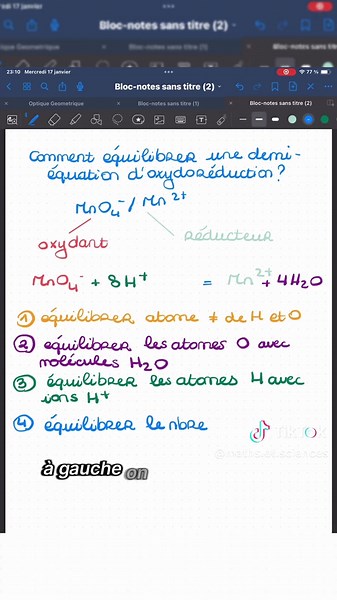 rdi 17 janvier
Bloc-notes sans titre (2)
Bloc-notes sans titre (1)
Bloc-notes sans titre (2)
23:10 Mercredi 17 janvier
77 %
Bloc-notes sans titre (2)
Optique Geometrique
Bloc-notes sans titre (1)
Bloc-notes sans titre (2)
Comment équilibrer une demi-
équation d'oxydoréduction?
MnO4⁻ / Mn²⁺
oxydant
réducteur
MnO4⁻ + 8H⁺ = Mn²⁺ + 4H2O
① équilibrer atome ≠ de H et O
② équilibrer les atomes O avec
molécules H2O
③ équilibrer les atomes H avec
ions H⁺
④ équilibrer le nbre
TikTok
à gauche on